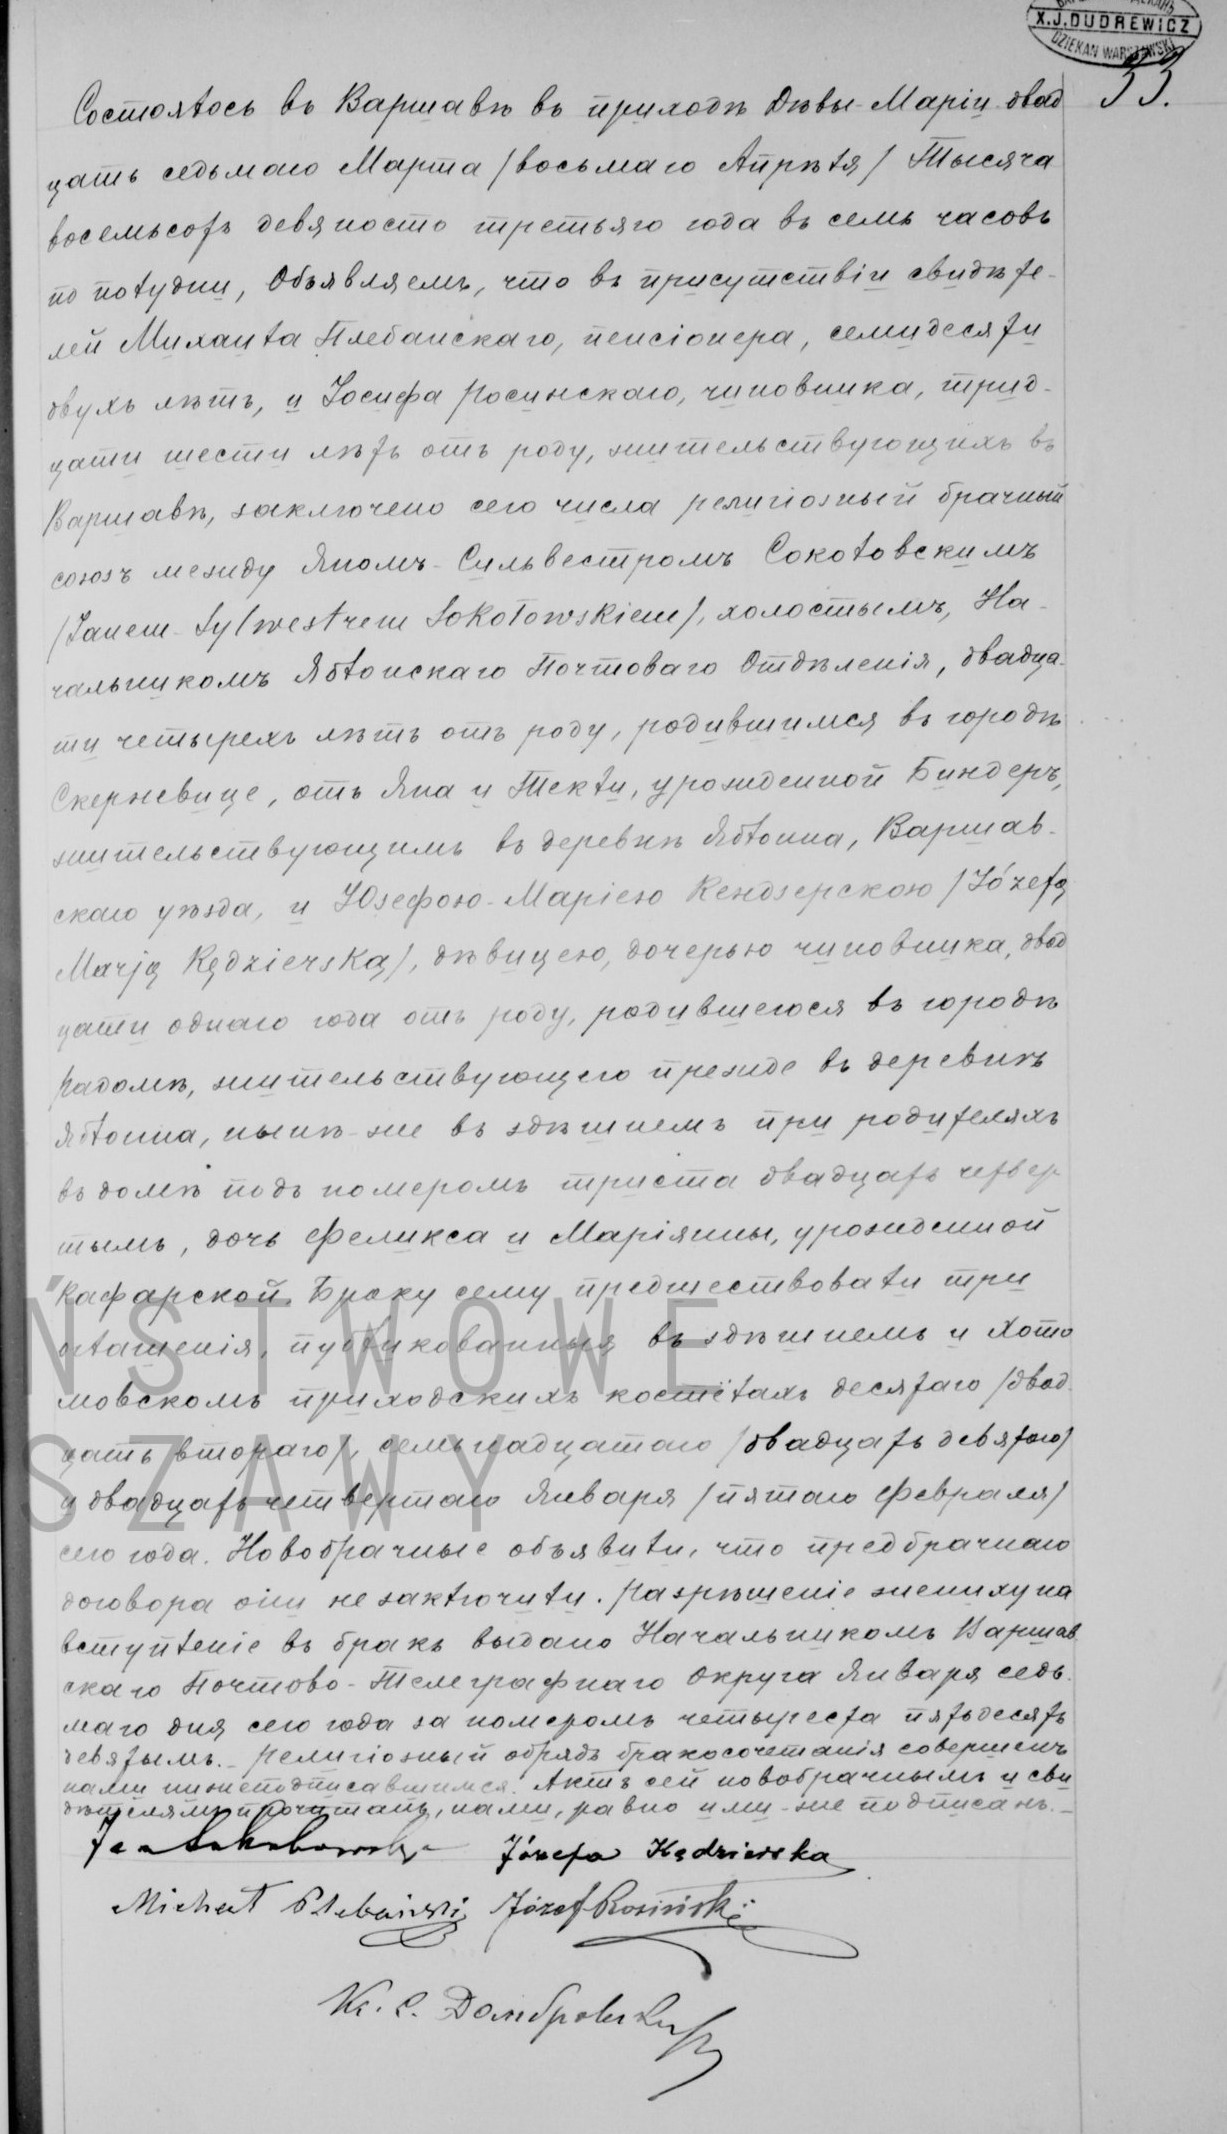 X.J.DUDREWICZ
DZIEKAN WARSZAWSKI
33.
Состоялось въ Варшавѣ въ приходѣ Дѣвы-Маріи двад
цать седьмаго Марта /восьмаго Апрѣля/ Тысяча
восемьсотъ девяносто третьяго года въ семь часовъ
по полудни, Объявляемъ, что въ присутствіи свидѣте-
лей Михаила Плебанскаго, пенсіонера, семидесяти
двухъ лѣтъ, и Іосифа Росинскаго, чиновника, трид-
цати шести лѣтъ отъ роду, жительствующихъ въ
Варшавѣ, заключено сего числа религіозный брачный
союзъ между Яномъ-Сильвестромъ Соколовскимъ
/Janem-Sylwestrem Sokołowskiem/, холостымъ, На-
чальникомъ Яблонскаго Почтоваго Отдѣленія, двадца-
ти четырехъ лѣтъ отъ роду, родившимся въ городѣ
Скерневице, отъ Яна и Текли, урожденной Биндеръ,
жительствующимъ въ деревнѣ Яблонна, Варшав-
скаго уѣзда, и Юзефою-Маріею Кендзерскою /Józefą
Marją Kędzierską/, дѣвицею, дочерью чиновника, двад
цати однаго года отъ роду, родившегося въ городѣ
Радомѣ, жительствующего прежде въ деревнѣ
Яблонна, нынѣ-же въ здѣшнемъ при родителяхъ
въ домѣ подъ номеромъ триста двадцать четвер
тымъ, дочь Феликса и Маріянны, урожденной
Кафарской. Браку сему предшествовали три
оглашенія, публикованныя въ здѣшнемъ и Хото
мовскомъ приходскихъ костёлахъ десятаго /двад
цать втораго/, семьнадцатаго /двадцать девятого/
и двадцать четвертаго Января /пятаго Февраля/
сего года. Новобрачные объявили, что предбрачнаго
договора они не заключили. Разрѣшеніе жениху на
вступленіе въ бракъ выдано Начальникомъ Варшав
скаго Почтово-Телеграфнаго Округа Января седь-
маго дня сего года за номеромъ четыреста пятьдесятъ
девятымъ._ Религіозный обрядъ бракосочетанія совершенъ
нами нижеподписавшимся. Актъ сей новобрачнымъ и сви
дѣтелямъ прочитанъ, нами, равно ими-же подписанъ._
Jan Sokołowski Józefa Kędzierska
Michał Plebański Józef Rosiński
Кс. С. Домбровскій
ŃSTWOWE
SZAWY